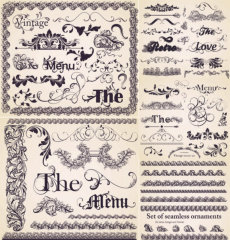 Vintage
The Menu
The
Retro
The
Love
Menu
The
The
Menu
Set of seamless ornaments